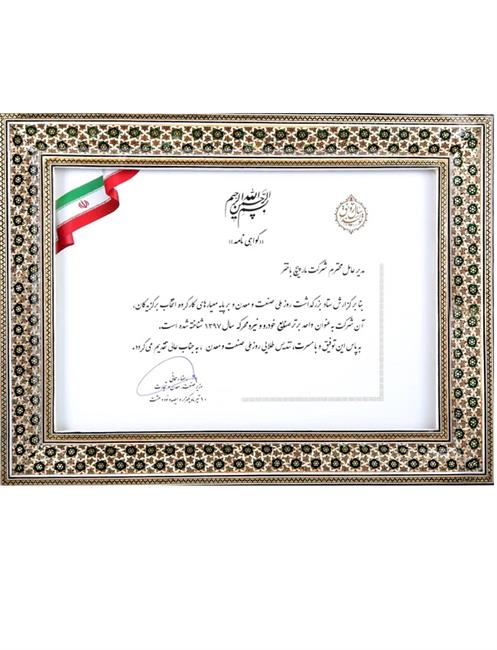 بسم الله الرحمن الرحیم
«گواهی نامه»
مدیر عامل محترم شرکت مارپیچ باختر
بنا بر گزارش ستاد بزرگداشت روز ملی صنعت و معدن و بر پایه معیارهای کارگروه انتخاب برگزیدگان،
آن شرکت به عنوان واحد برتر صنایع خودرو و نیرو محرکه سال ۱۳۹۷ شناخته شده است.
به پاس این توفیق و با مسرت، تندیس طلایی روز ملی صنعت و معدن ، به جناب عالی تقدیم می گردد.
وزیر صنعت، معدن و تجارت